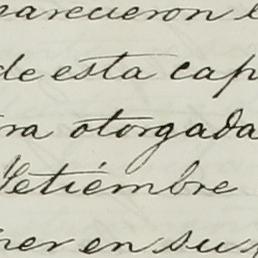 parecieron l
de esta cap
ra otorgada
Setiémbre
ner en su